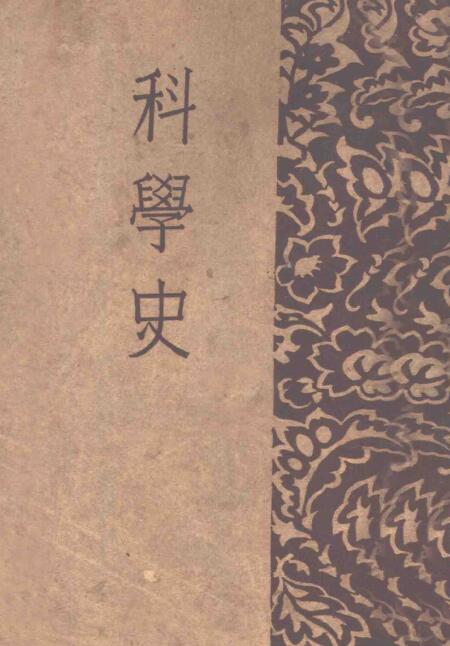 科學史